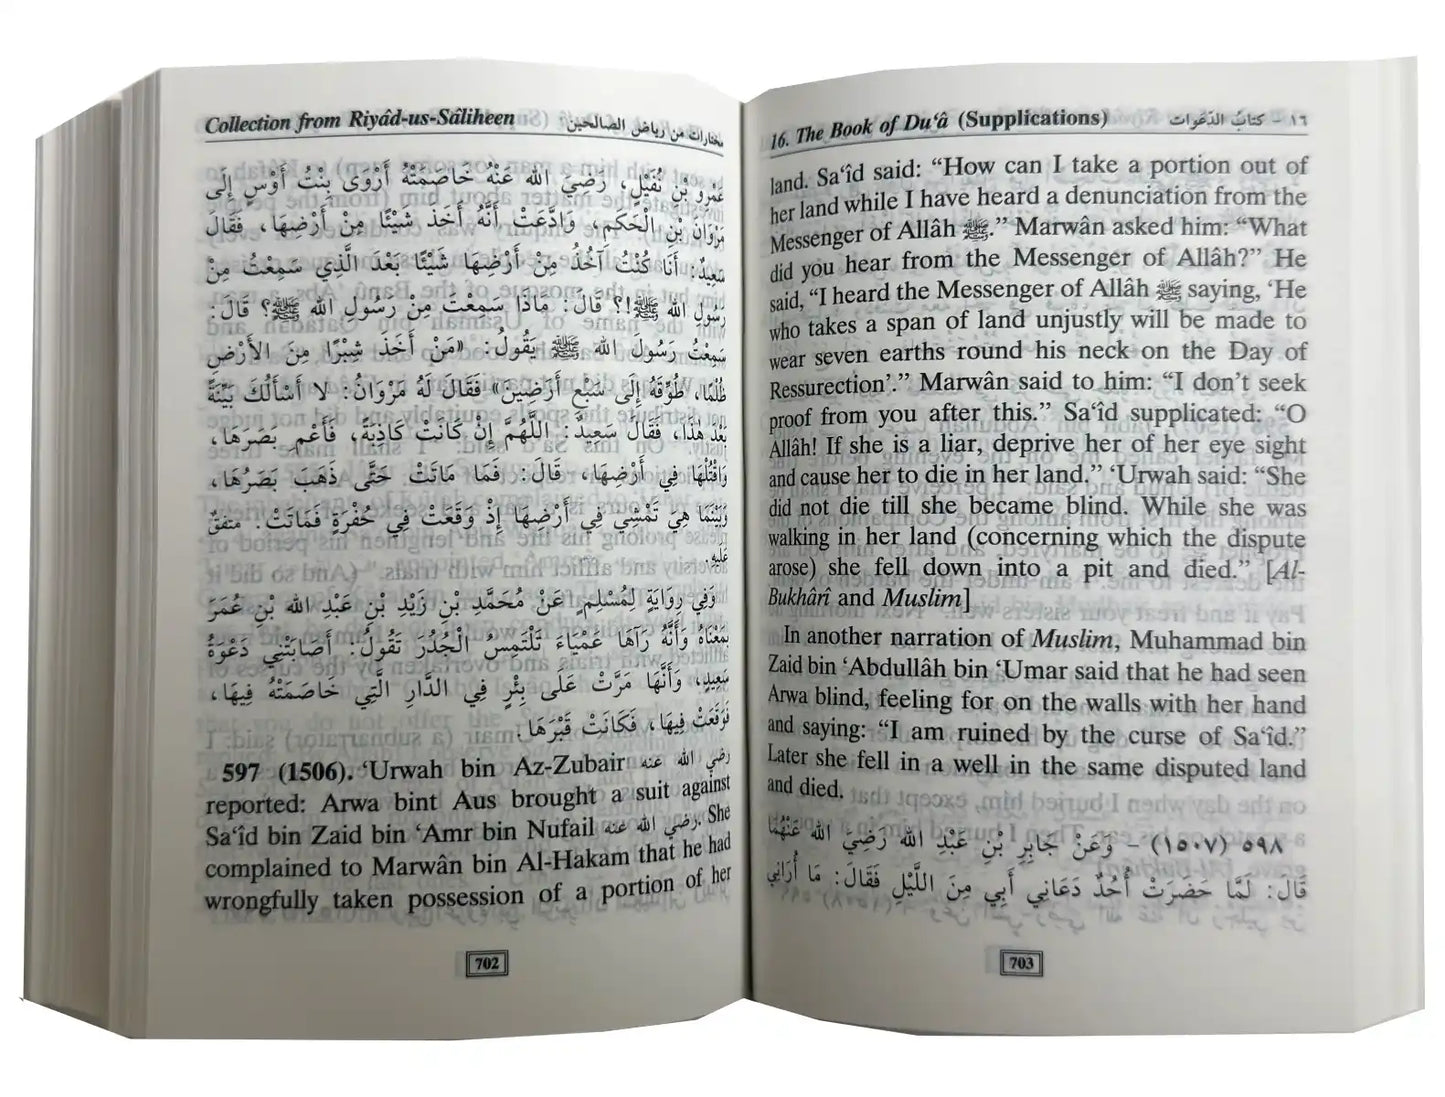 Collection from Riyâd-us-Sâliheen مختارات من رياض الصالحين
عَمْرِو بْنِ نُفَيْلٍ، رَضِيَ الله عَنْهُ خَاصَمَتْهُ أَرْوَى بِنْتُ أَوْسٍ إِلَى
مَرْوَانَ بْنِ الْحَكَمِ، وَادَّعَتْ أَنَّهُ أَخَذَ شَيْئًا مِنْ أَرْضِهَا، فَقَالَ
سَعِيدٌ: أَنَا كُنْتُ آخُذُ مِنْ أَرْضِهَا شَيْئًا بَعْدَ الَّذِي سَمِعْتُ مِنْ
رَسُولِ الله ﷺ!؟ قَالَ: مَاذَا سَمِعْتَ مِنْ رَسُولِ الله ﷺ؟ قَالَ:
سَمِعْتُ رَسُولَ الله ﷺ يَقُولُ: «مَنْ أَخَذَ شِبْرًا مِنَ الأَرْضِ
ظُلْمًا، طُوِّقَهُ إِلَى سَبْعِ أَرَضِينَ» فَقَالَ لَهُ مَرْوَانُ: لا أَسْأَلُكَ بَيِّنَةً
بَعْدَ هٰذَا، فَقَالَ سَعِيدٌ: اللَّهُمَّ إِنْ كَانَتْ كَاذِبَةً، فَأَعْمِ بَصَرَهَا،
وَاقْتُلْهَا فِي أَرْضِهَا، قَالَ: فَمَا مَاتَتْ حَتَّى ذَهَبَ بَصَرُهَا،
وَبَيْنَمَا هِيَ تَمْشِي فِي أَرْضِهَا إِذْ وَقَعَتْ فِي حُفْرَةٍ فَمَاتَتْ. متفقٌ
عَلَيْهِ.
وَفِي رِوَايَةٍ لِمُسْلِمٍ عَنْ مُحَمَّدِ بْنِ زَيْدِ بْنِ عَبْدِ الله بْنِ عُمَرَ
بِمَعْنَاهُ وَأَنَّهُ رَآهَا عَمْيَاءَ تَلْتَمِسُ الْجُدُرَ تَقُولُ: أَصَابَتْنِي دَعْوَةُ
سَعِيدٍ، وَأَنَّهَا مَرَّتْ عَلَى بِئْرٍ فِي الدَّارِ الَّتِي خَاصَمَتْهُ فِيهَا،
فَوَقَعَتْ فِيهَا، فَكَانَتْ قَبْرَهَا.
597 (1506). ‘Urwah bin Az-Zubair رضي الله عنه
reported: Arwa bint Aus brought a suit against
Sa‘îd bin Zaid bin ‘Amr bin Nufail رضي الله عنه. She
complained to Marwân bin Al-Hakam that he had
wrongfully taken possession of a portion of her
702
16. The Book of Du‘â (Supplications) ١٦ - كتاب الدعوات
land. Sa‘îd said: “How can I take a portion out of
her land while I have heard a denunciation from the
Messenger of Allâh ﷺ.” Marwân asked him: “What
did you hear from the Messenger of Allâh?” He
said, “I heard the Messenger of Allâh ﷺ saying, ‘He
who takes a span of land unjustly will be made to
wear seven earths round his neck on the Day of
Ressurection’.” Marwân said to him: “I don’t seek
proof from you after this.” Sa‘îd supplicated: “O
Allâh! If she is a liar, deprive her of her eye sight
and cause her to die in her land.” ‘Urwah said: “She
did not die till she became blind. While she was
walking in her land (concerning which the dispute
arose) she fell down into a pit and died.” [Al-
Bukhârî and Muslim]
In another narration of Muslim, Muhammad bin
Zaid bin ‘Abdullâh bin ‘Umar said that he had seen
Arwa blind, feeling for on the walls with her hand
and saying: “I am ruined by the curse of Sa‘îd.”
Later she fell in a well in the same disputed land
and died.
٥٩٨ (١٥٠٧) - وَعَنْ جَابِرِ بْنِ عَبْدِ الله رَضِيَ الله عَنْهُمَا
قَالَ: لَمَّا حَضَرَتْ أُحُدٌ دَعَانِي أَبِي مِنَ اللَّيْلِ فَقَالَ: مَا أُرَانِي
703